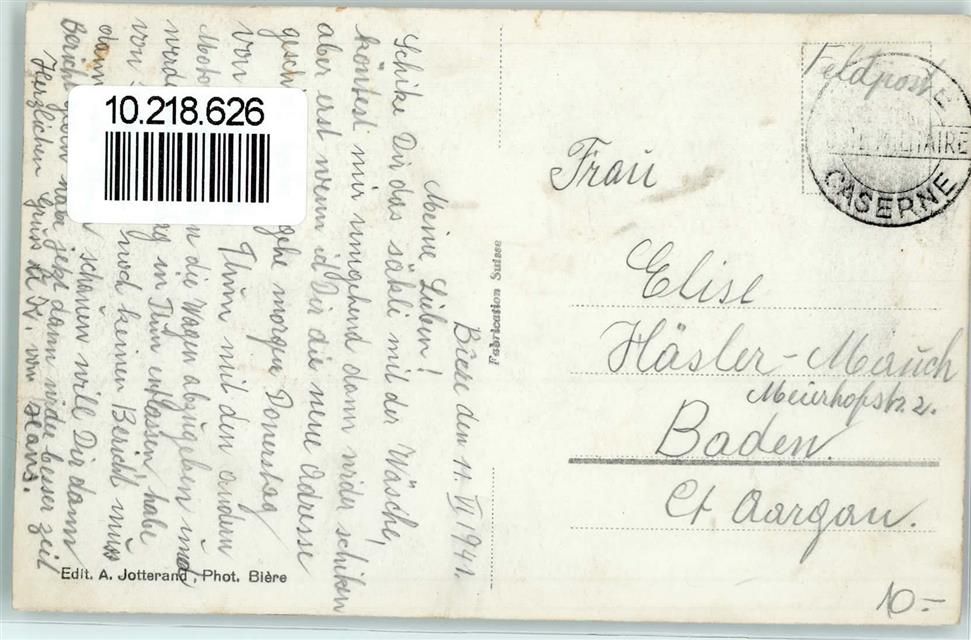 Biere den 11. VI. 1941.
Meine Lieben!
Schike Dir das säkli mit der Wäsche,
köntest mir umgehend dann wider schiken
aber erst wenn ich Dir die neue Adresse
gehe morgen Donerstag
von Thun mit den andern
Moto die Wagen abzugeben und
werde in Thun entlassen, habe
von noch keinen Bericht muss
dann schauen will Dir dann
Bericht geben habe jezt dann wider besser zeit
Herzlichen Gruss
Hans.
10.218.626
Edit. A. Jotterand, Phot. Bière
Fabrication Suisse
Feldpost
MILITAIRE
CASERNE
Frau
Elise
Häsler-Mauch
Meierhofstr. 2.
Baden.
Ct Aargau.
10.-